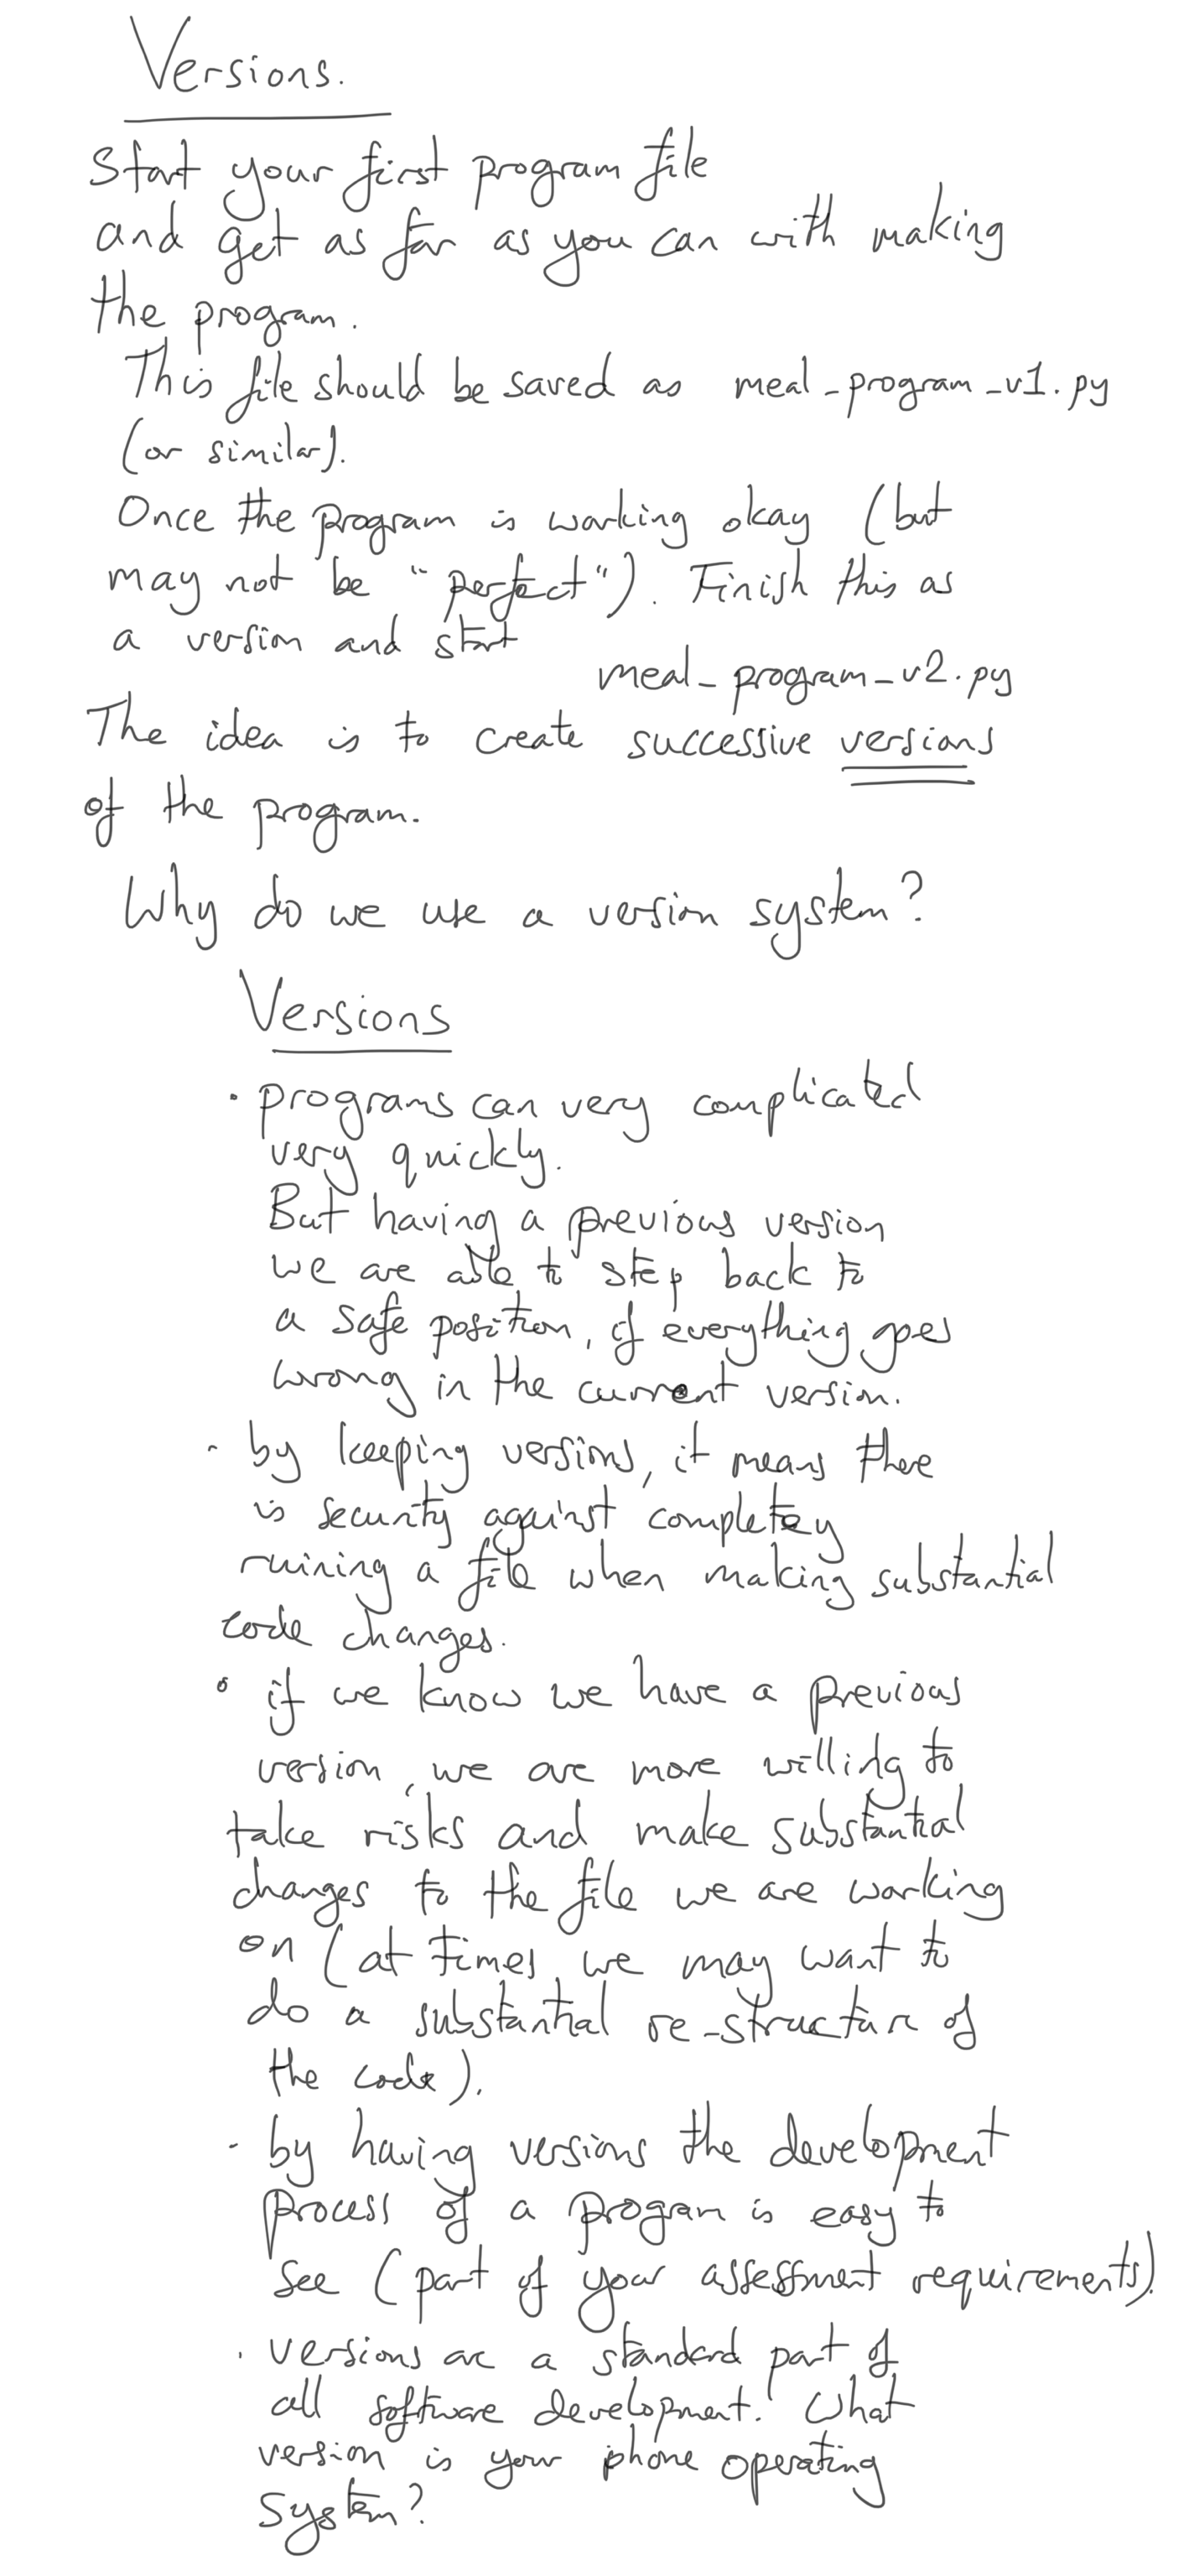 Versions.
Start your first program file
and get as far as you can with making
the program.
This file should be saved as meal_program_v1.py
(or similar).
Once the program is working okay (but
may not be "perfect"). Finish this as
a version and start
meal_program_v2.py
The idea is to create successive versions
of the program.
Why do we use a version system?
Versions
· programs can very complicated
very quickly.
But having a previous version
we are able to step back to
a safe position, if everything goes
wrong in the current version.
- by keeping versions, it means there
is security against completey
ruining a file when making substantial
code changes.
· if we know we have a previous
version, we are more willing to
take risks and make substantial
changes to the file we are working
on (at times we may want to
do a substantial re-structure of
the code).
- by having versions the development
process of a program is easy to
see (part of your assessment requirements).
· versions are a standard part of
all software development. What
version is your phone operating
system?